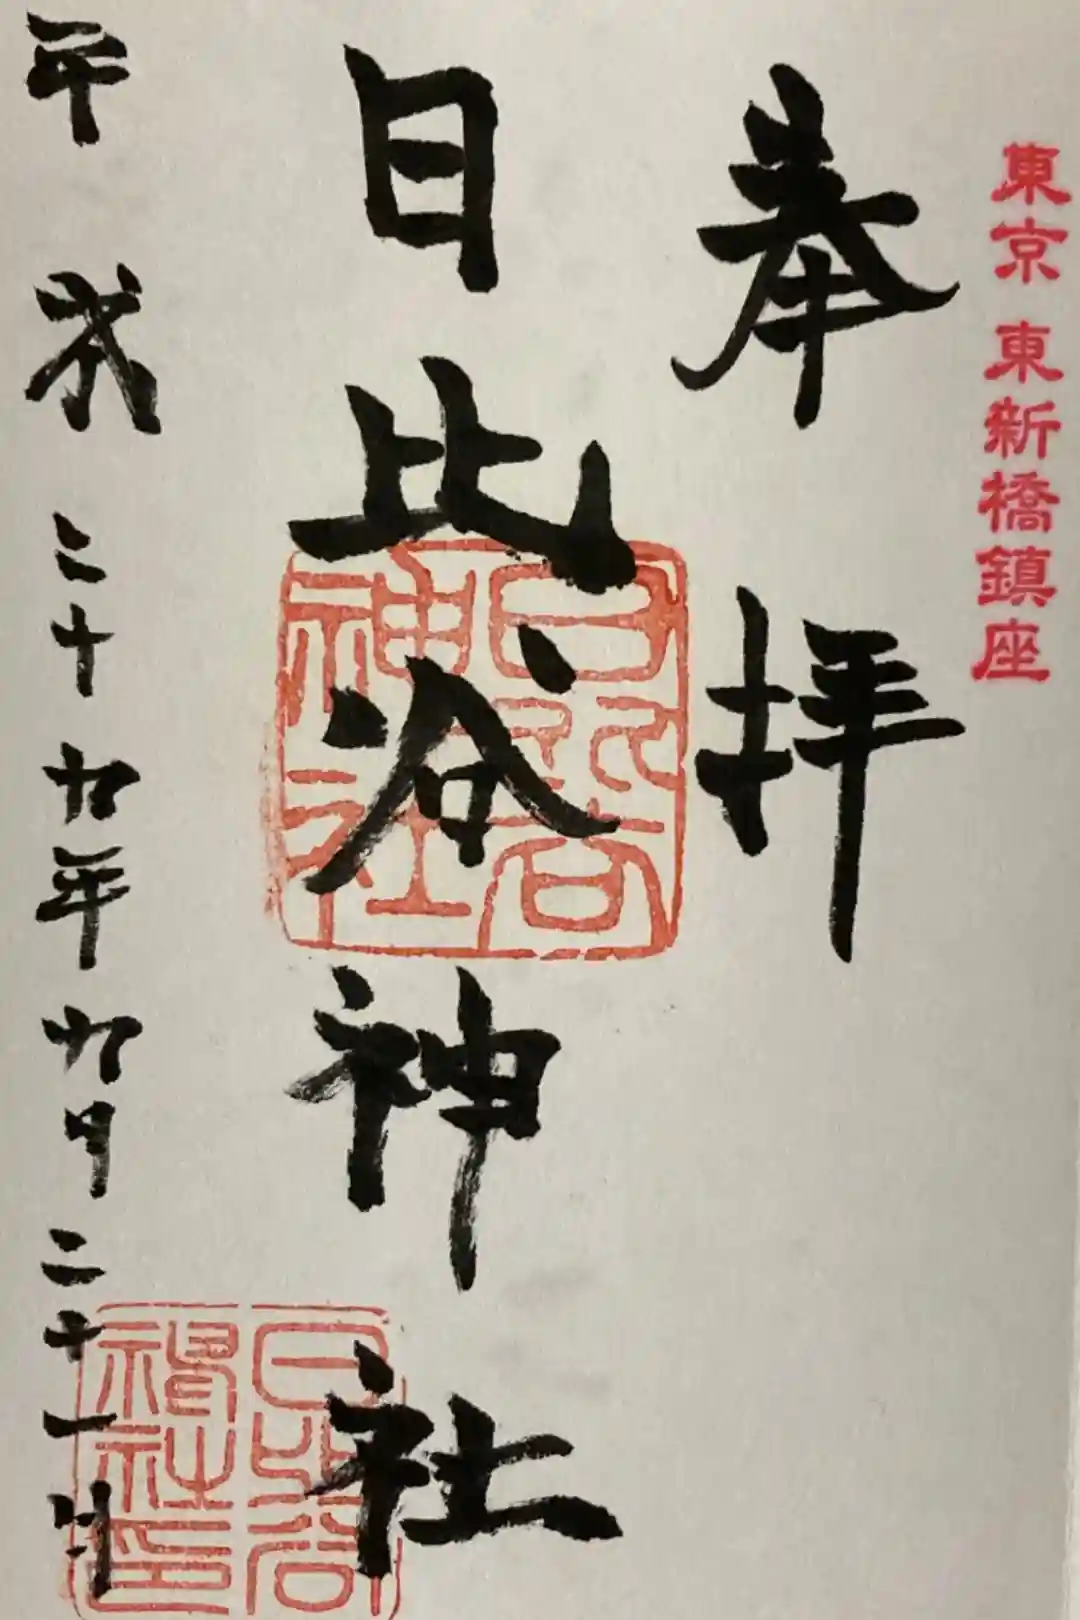 東京 東新橋鎮座
奉拝
日比谷神社
日比谷神社
平成二十九年九月二十一日
日比谷神社印